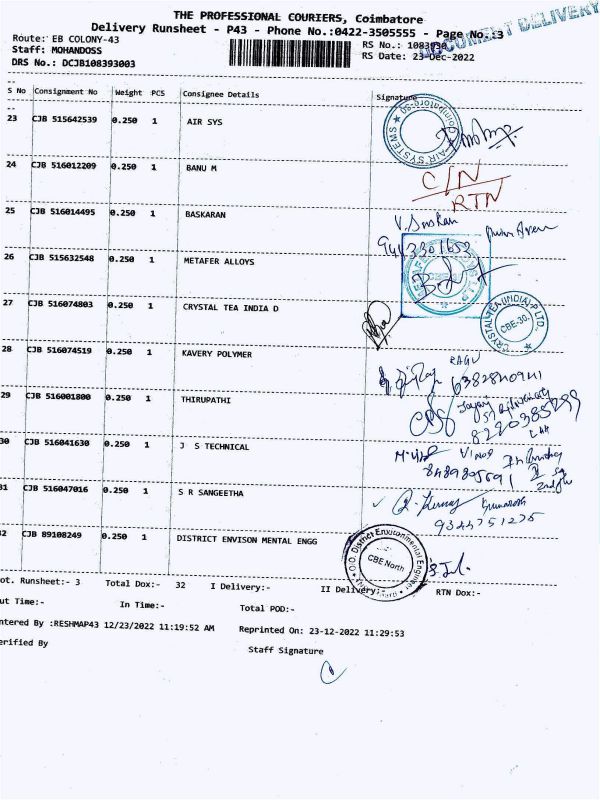 THE PROFESSIONAL COURIERS, Coimbatore
Delivery Runsheet - P43 - Phone No.:0422-3505555 - Page No.:3
DOCUMENT DELIVERY
Route: EB COLONY-43
RS No.: 1083930
Staff: MOHANDOSS
RS Date: 23-Dec-2022
DRS No.: DCJB108393003
S No Consignment No Weight PCS Consignee Details Signature
23 CJB 515642539 0.250 1 AIR SYS
AIR SYSTEMS
24 CJB 516012209 0.250 1 BANU M
C/N
RTN
25 CJB 516014495 0.250 1 BASKARAN
26 CJB 515632548 0.250 1 METAFER ALLOYS
27 CJB 516074803 0.250 1 CRYSTAL TEA INDIA D
CRYSTAL TEA (INDIA) P LTD.
CBE-30.
28 CJB 516074519 0.250 1 KAVERY POLYMER
RAGU
6382840941
29 CJB 516001800 0.250 1 THIRUPATHI
8220385299
30 CJB 516041630 0.250 1 J S TECHNICAL
VINOS
8489895691
31 CJB 516047016 0.250 1 S R SANGEETHA
9344751275
32 CJB 89108249 0.250 1 DISTRICT ENVISON MENTAL ENGG
O.O. District Environmental Engineer
CBE North
ot. Runsheet:- 3 Total Dox:- 32 I Delivery:- II Delivery:- RTN Dox:-
ut Time:- In Time:- Total POD:-
ntered By :RESHMAP43 12/23/2022 11:19:52 AM Reprinted On: 23-12-2022 11:29:53
erified By Staff Signature